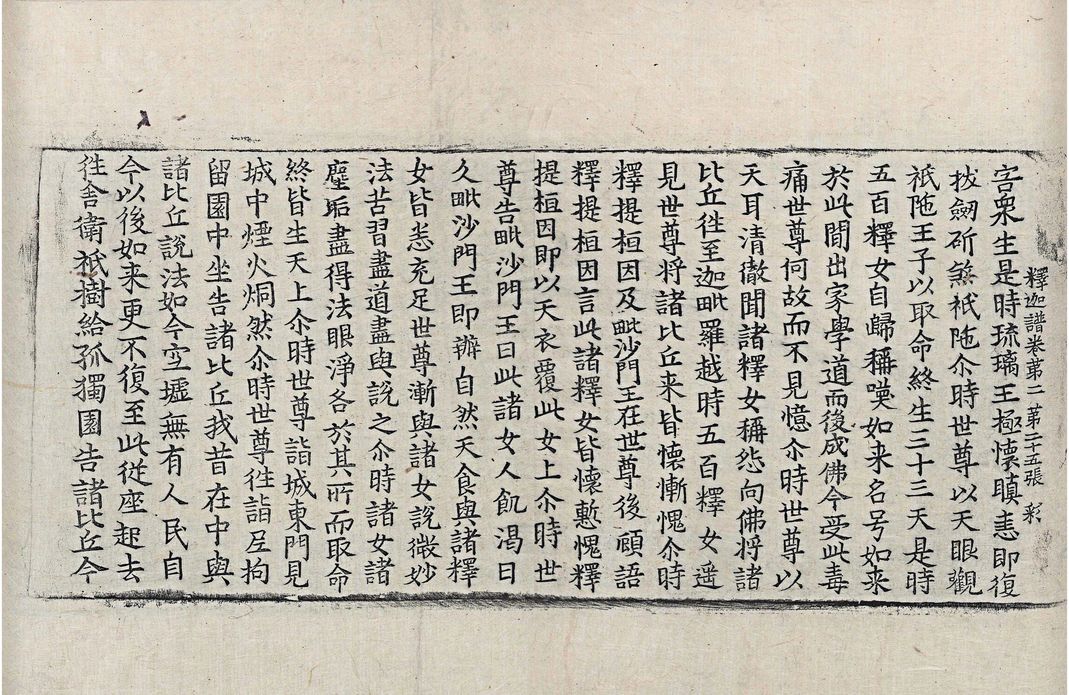 釋迦譜卷第二 第二十五張 彩
害衆生是時琉璃王極懷瞋恚即復
拔劒斫煞祇陁尒時世尊以天眼觀
祇陁王子以取命終生三十三天是時
五百釋女自歸稱嘆如来名号如来
於此閒出家學道而後成佛今受此毒
痛世尊何故而不見憶尒時世尊以
天耳清徹聞諸釋女稱怨向佛將諸
比丘徃至迦毗羅越時五百釋女遥
見世尊將諸比丘来皆懷慚愧尒時
釋提桓因及毗沙門王在世尊後顧語
釋提桓因言此諸釋女皆懷慙愧釋
提桓因即以天衣覆此女上尒時世
尊告毗沙門王曰此諸女人飢渴日
久毗沙門王即辦自然天食與諸釋
女皆悉充足世尊漸與諸女說微妙
法苦習盡道盡與說之尒時諸女諸
塵垢盡得法眼淨各於其所而取命
終皆生天上尒時世尊詣城東門見
城中煙火烔然尒時世尊徃詣𡰱拘
留園中坐告諸比丘我昔在中與
諸比丘說法如今空墟無有人民自
今以後如来更不復至此從座起去
徃舍衛祇樹給孤獨園告諸比丘今